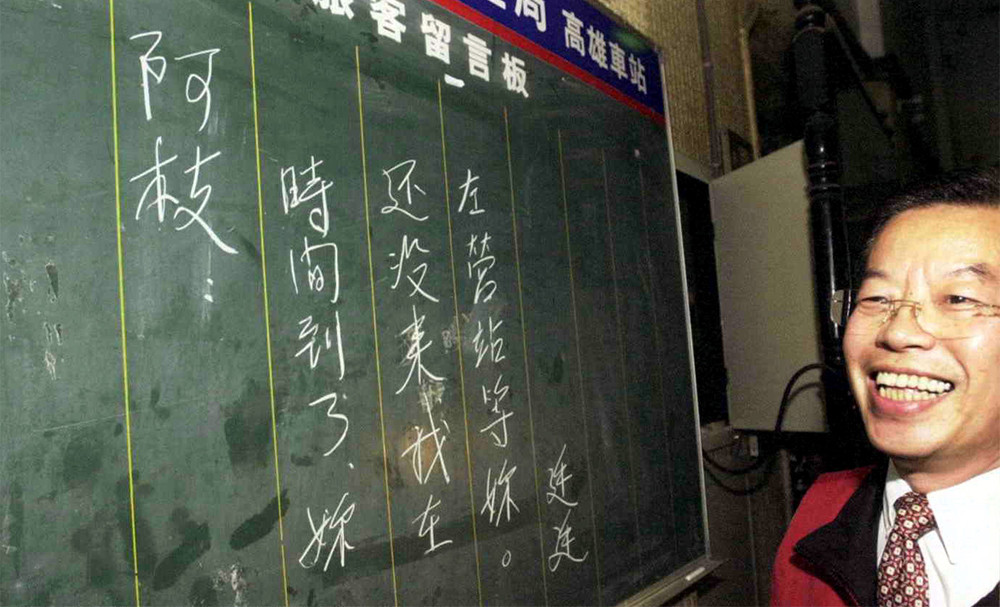 局 高雄車站
旅客留言板
阿枝：
時间到了、妳
还没来我在
左營站等妳。
廷廷